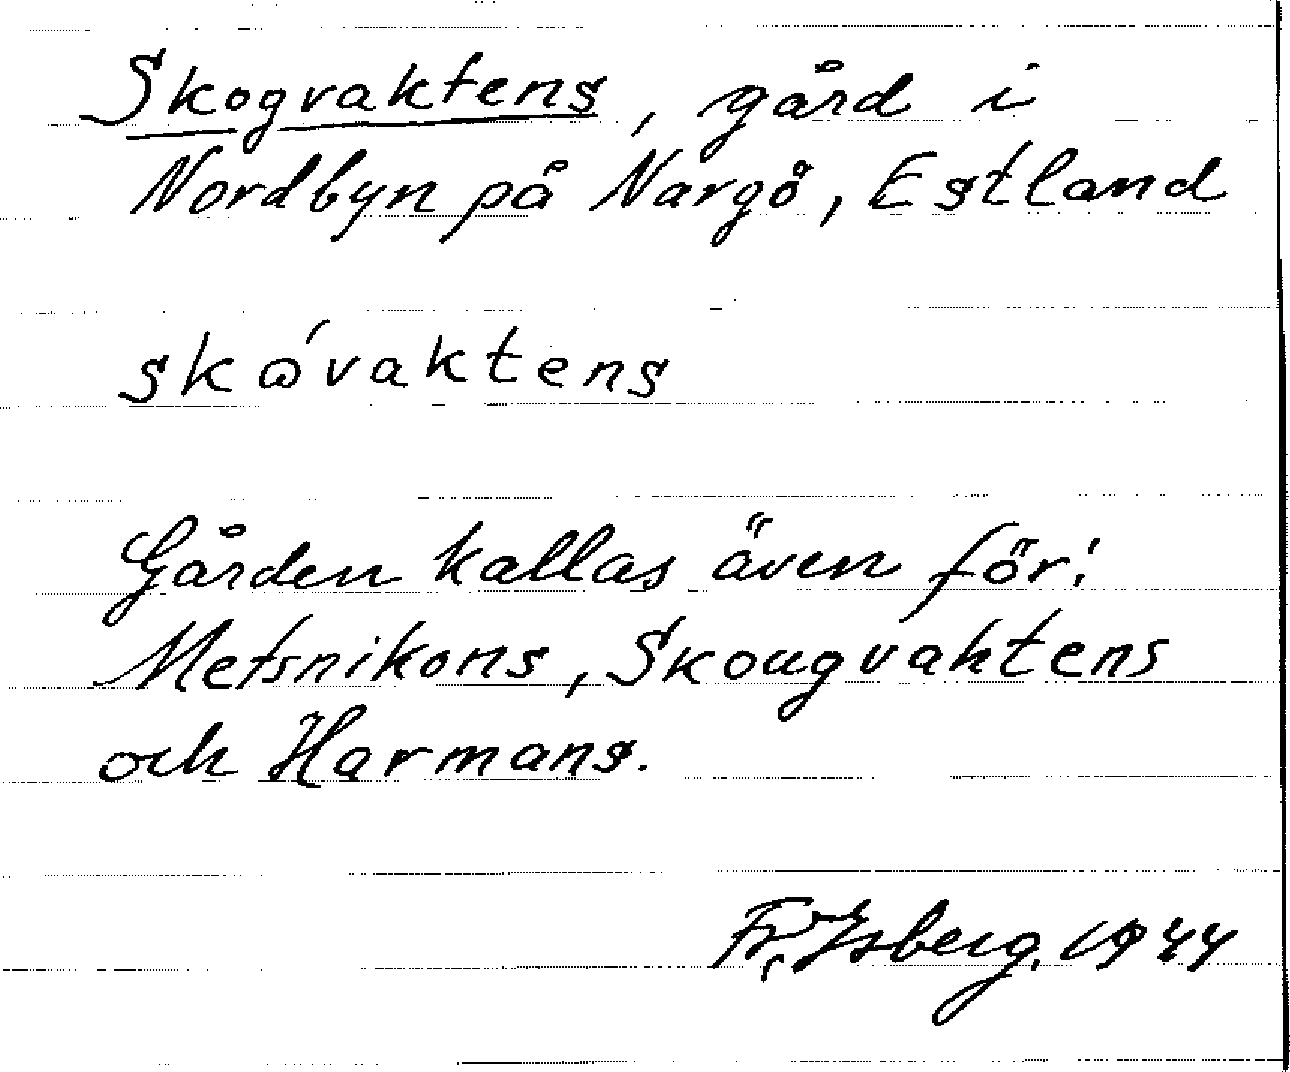 Skogvaktens, gård i
Nordbyn på Nargö, Estland
skω´vaktens
Gården kallas även för:
Metsnikons, Skougvaktens
och Harmans.
Fr. Isberg, 1944